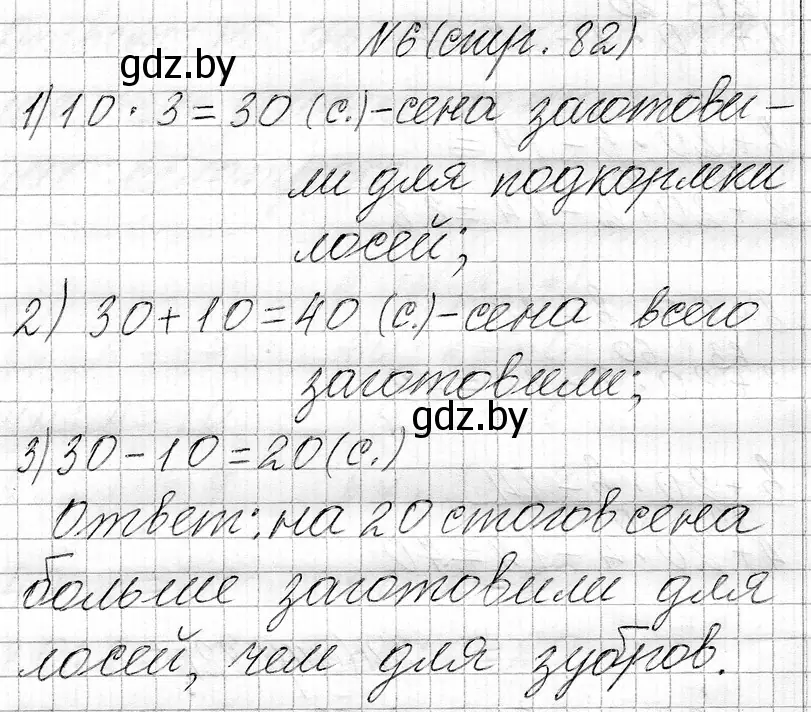 N6 (стр. 82)
gdz.by
1) 10 · 3 = 30 (с.) - сена заготови-
ли для подкормки
лосей;
2) 30 + 10 = 40 (с.) - сена всего
заготовили;
gdz.by
3) 30 - 10 = 20 (с.)
Ответ: на 20 стогов сена
больше заготовили для
лосей, чем для зубров.